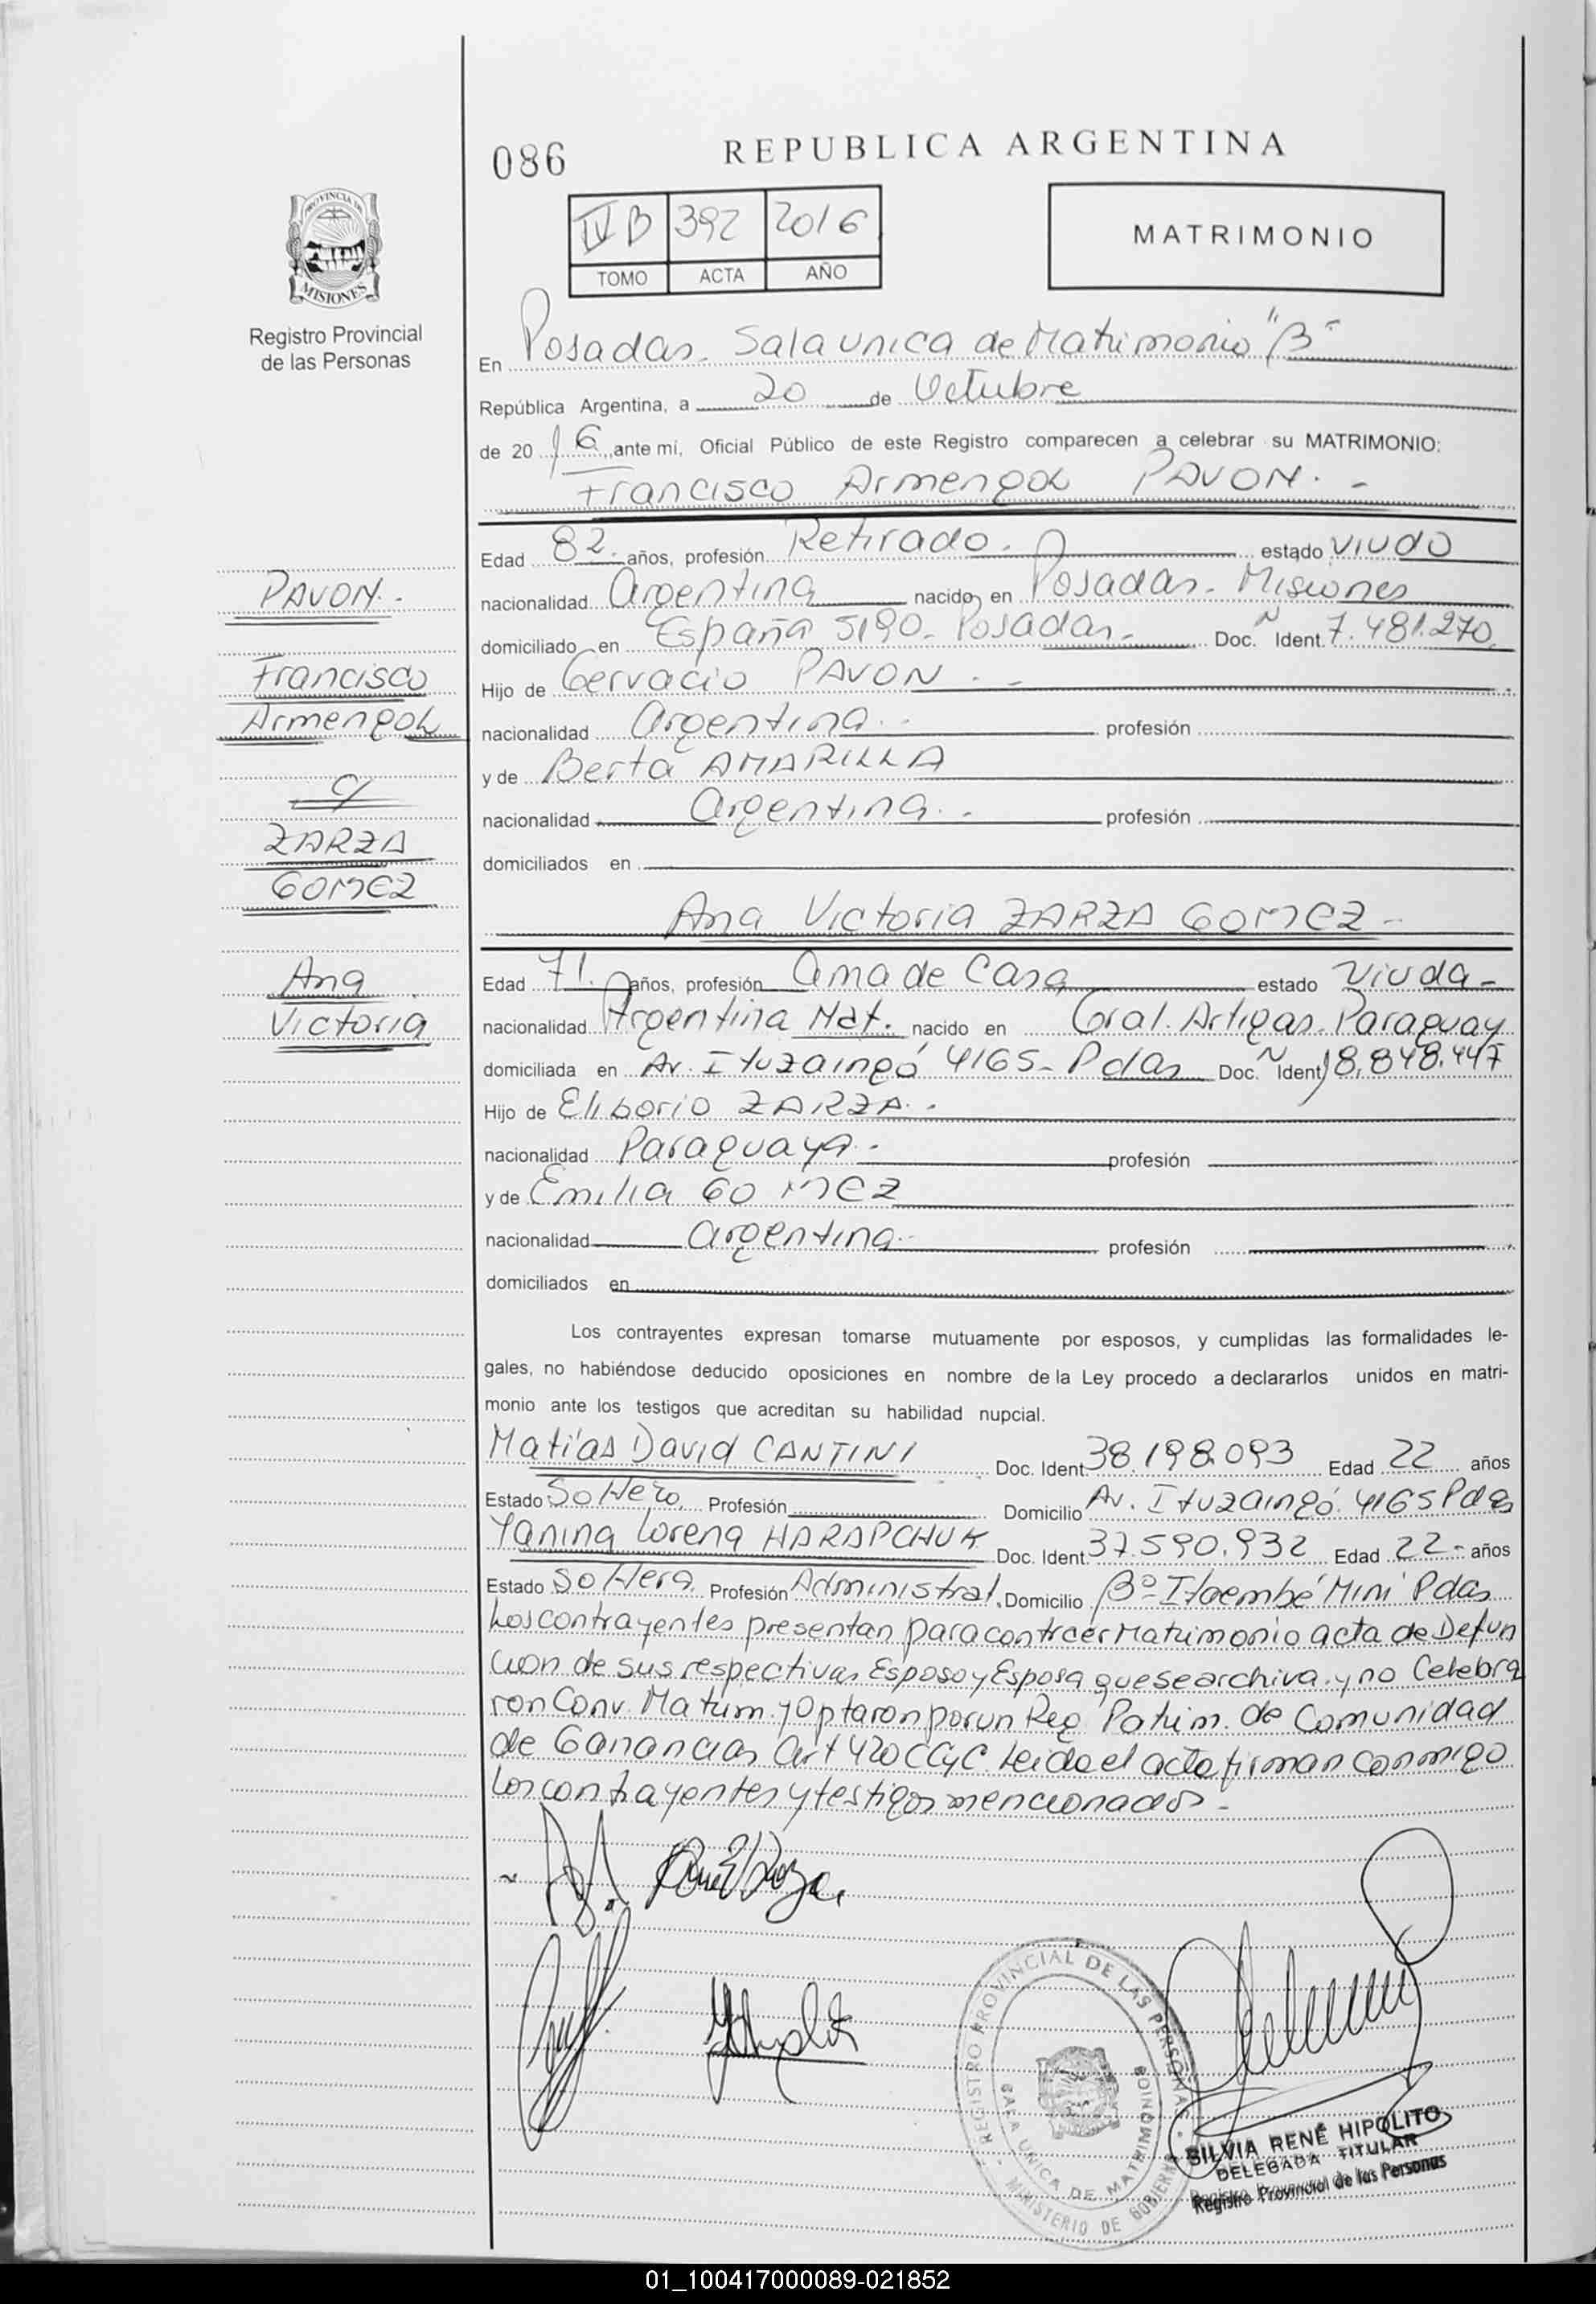 086
REPUBLICA ARGENTINA
PROVINCIA DE
MISIONES
Registro Provincial
de las Personas
IV B 392 2016
TOMO ACTA AÑO
MATRIMONIO
En Posadas. Sala unica de Matrimonio "B"
República Argentina, a 20 de Octubre
de 2016 ante mí, Oficial Público de este Registro comparecen a celebrar su MATRIMONIO:
Francisco Armengol PAVON. -
Edad 82. años, profesión Retirado. estado viudo
PAVON. -
nacionalidad Argentina nacido en Posadas - Misiones
domiciliado en España 5190 - Posadas - Doc. Ident. 7.481.270
Francisco
Hijo de Gervacio PAVON. -
Armengol
nacionalidad Argentina. - profesión
y de Berta AMARILLA
c/
nacionalidad Argentina. - profesión
ZARZA
domiciliados en
GOMEZ
Ana Victoria ZARZA GOMEZ -
Edad 71. años, profesión ama de Casa estado Viuda -
Ana
Victoria
nacionalidad Argentina Nat. nacido en Gral. Artigas - Paraguay
domiciliada en Av. Ituzaingó 4165 - Pdas Doc. Ident. 18.848.447
Hijo de Eliborio ZARZA. -
nacionalidad Paraguaya - profesión
y de Emilia GOMEZ
nacionalidad argentina - profesión
domiciliados en
Los contrayentes expresan tomarse mutuamente por esposos, y cumplidas las formalidades le-
gales, no habiéndose deducido oposiciones en nombre de la Ley procedo a declararlos unidos en matri-
monio ante los testigos que acreditan su habilidad nupcial.
Matías David CANTINI Doc. Ident. 38.198.093 Edad 22 años
Estado Soltero Profesión Domicilio Av. Ituzaingó 4165 Pdas
Yanina Lorena HARAPCHUK Doc. Ident. 37.590.932 Edad 22 - años
Estado Soltera Profesión Administrat. Domicilio Bº Itaembé Miní Pdas
Los contrayentes presentan para contraer Matrimonio acta de Defun
cion de sus respectivas Esposo y Esposa que se archiva y no Celebra
ron Conv. Matrim. y Optaron por un Reg. Patrim. de Comunidad
de Ganancias art 420 CCyC. Leida el acta firman conmigo
los contrayentes y testigos mencionados -
REGISTRO PROVINCIAL DE LAS PERSONAS
SALA UNICA DE MATRIMONIO
MINISTERIO DE GOBIERNO
SILVIA RENÉ HIPOLITO
DELEGADA TITULAR
Registro Provincial de las Personas
01_100417000089-021852